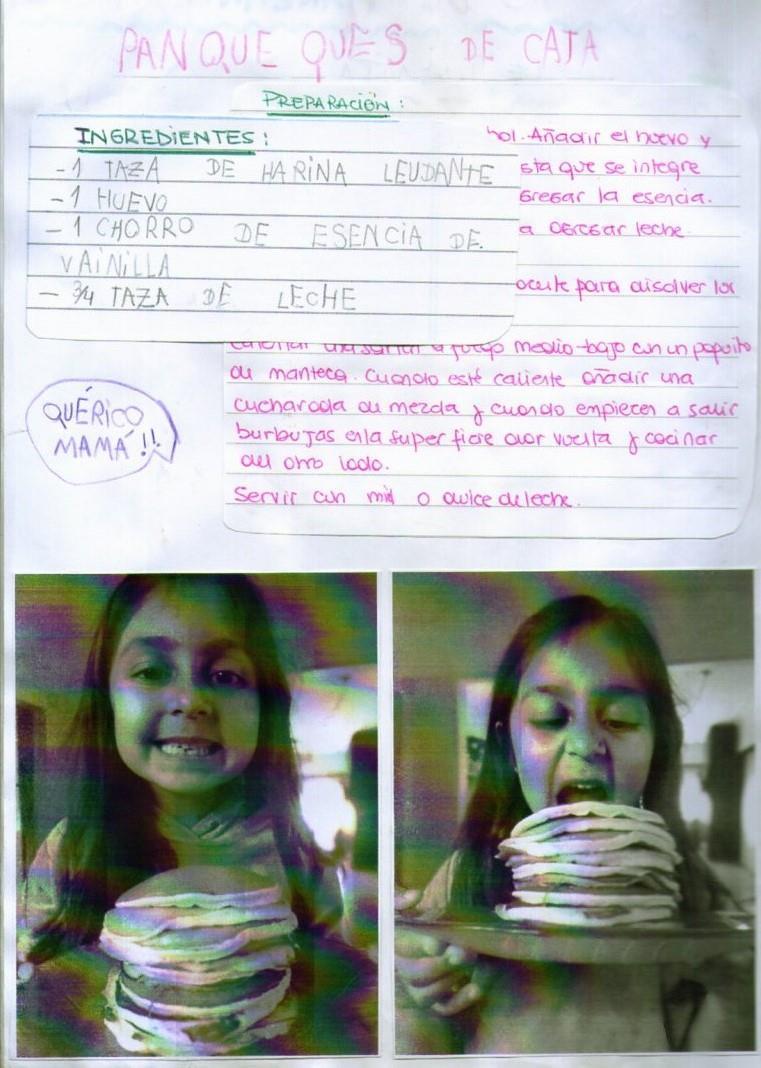 PANQUEQUES DE CATA
PREPARACIÓN:
INGREDIENTES:
-1 TAZA DE HARINA LEUDANTE
-1 HUEVO
-1 CHORRO DE ESENCIA DE
VAINILLA
- 3/4 TAZA DE LECHE
Añadir el huevo y
que se integre
la esencia.
a leche
para disolver los
a fuego medio-bajo con un poquito
de manteca. Cuando esté caliente añadir una
cucharada de mezcla y cuando empiecen a salir
burbujas en la superficie dar vuelta y cocinar
del otro lado.
Servir con miel o dulce de leche.
QUÉ RICO
MAMÁ!!